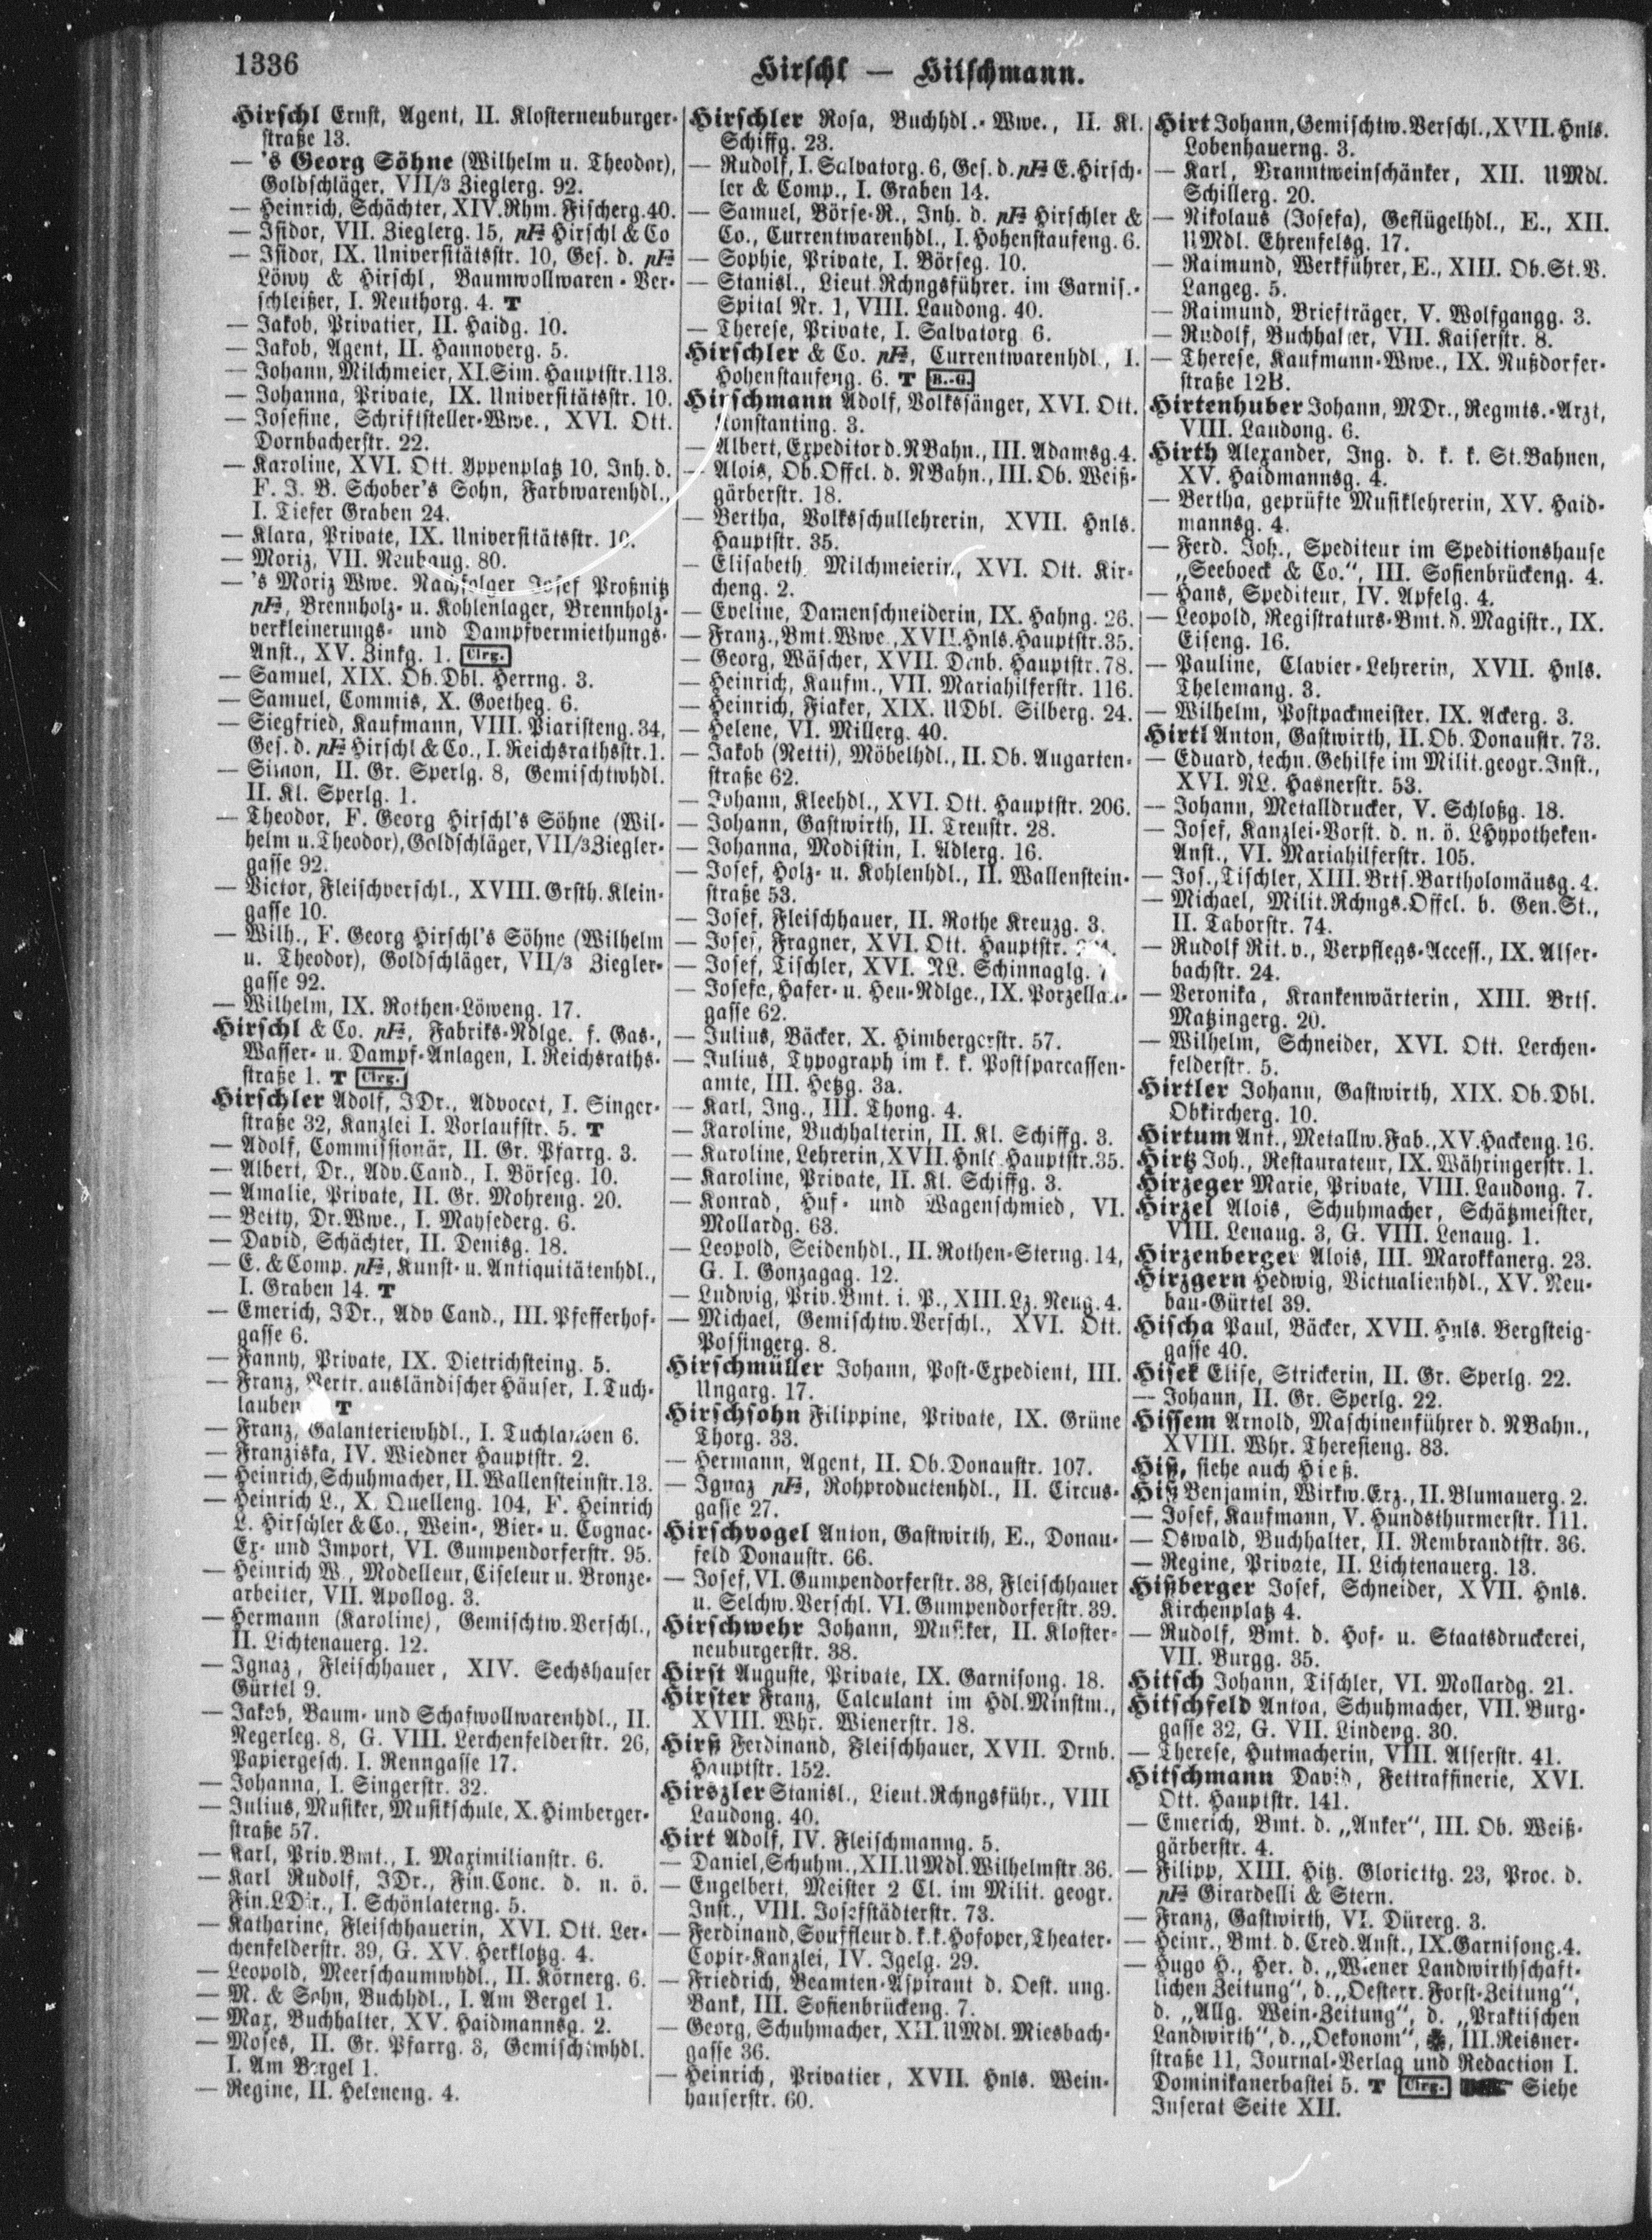 1336
Hirschl — Hitschmann.
Hirschl Ernst, Agent, II. Klosterneuburger-
straße 13.
— 's Georg Söhne (Wilhelm u. Theodor),
Goldschläger, VII/3 Zieglerg. 92.
— Heinrich, Schächter, XIV. Rhm. Fischerg. 40.
— Isidor, VII. Zieglerg. 15, pF Hirschl & Co
— Isidor, IX. Universitätsstr. 10, Ges. d. pF
Löwy & Hirschl, Baumwollwaren-Ver-
schleißer, I. Neuthorg. 4. T
— Jakob, Privatier, II. Haidg. 10.
— Jakob, Agent, II. Hannoverg. 5.
— Johann, Milchmeier, XI. Sim. Hauptstr. 113.
— Johanna, Private, IX. Universitätsstr. 10.
— Josefine, Schriftsteller-Wwe., XVI. Ott.
Dornbacherstr. 22.
— Karoline, XVI. Ott. Yppenplatz 10, Inh. d.
F. J. B. Schober's Sohn, Farbwarenhdl.,
I. Tiefer Graben 24.
— Klara, Private, IX. Universitätsstr. 10.
— Moriz, VII. Neubaug. 80.
— 's Moriz Wwe. Nachfolger Josef Proßnitz
pF, Brennholz- u. Kohlenlager, Brennholz-
verkleinerungs- und Dampfvermiethungs-
Anst., XV. Zinkg. 1. Clrg.
— Samuel, XIX. Ob. Dbl. Herrng. 3.
— Samuel, Commis, X. Goetheg. 6.
— Siegfried, Kaufmann, VIII. Piaristeng. 34,
Ges. d. pF Hirschl & Co., I. Reichsrathsstr. 1.
— Simon, II. Gr. Sperlg. 8, Gemischtwhdl.
II. Kl. Sperlg. 1.
— Theodor, F. Georg Hirschl's Söhne (Wil-
helm u. Theodor), Goldschläger, VII/3 Ziegler-
gasse 92.
— Victor, Fleischverschl., XVIII. Grsth. Klein-
gasse 10.
— Wilh., F. Georg Hirschl's Söhne (Wilhelm
u. Theodor), Goldschläger, VII/3 Ziegler-
gasse 92.
— Wilhelm, IX. Rothen-Löweng. 17.
Hirschl & Co. pF, Fabriks-Ndlge. f. Gas-,
Wasser- u. Dampf-Anlagen, I. Reichsraths-
straße 1. T Clrg.
Hirschler Adolf, JDr., Advocat, I. Singer-
straße 32, Kanzlei I. Vorlaufstr. 5. T
— Adolf, Commissionär, II. Gr. Pfarrg. 3.
— Albert, Dr., Adv. Cand., I. Börseg. 10.
— Amalie, Private, II. Gr. Mohreng. 20.
— Betty, Dr. Wwe., I. Maysederg. 6.
— David, Schächter, II. Denisg. 18.
— E. & Comp. pF, Kunst- u. Antiquitätenhdl.,
I. Graben 14. T
— Emerich, JDr., Adv Cand., III. Pfefferhof-
gasse 6.
— Fanny, Private, IX. Dietrichsteing. 5.
— Franz, Vertr. ausländischer Häuser, I. Tuch-
lauben T
— Franz, Galanteriewhdl., I. Tuchlauben 6.
— Franziska, IV. Wiedner Hauptstr. 2.
— Heinrich, Schuhmacher, II. Wallensteinstr. 13.
— Heinrich L., X. Quelleng. 104, F. Heinrich
L. Hirschler & Co., Wein-, Bier- u. Cognac-
Ex- und Import, VI. Gumpendorferstr. 95.
— Heinrich W., Modelleur, Ciseleur u. Bronze-
arbeiter, VII. Apollog. 3.
— Hermann (Karoline), Gemischtw. Verschl.,
II. Lichtenauerg. 12.
— Ignaz, Fleischhauer, XIV. Sechshauser
Gürtel 9.
— Jakob, Baum- und Schafwollwarenhdl., II.
Negerleg. 8, G. VIII. Lerchenfelderstr. 26,
Papiergesch. I. Renngasse 17.
— Johanna, I. Singerstr. 32.
— Julius, Musiker, Musikschule, X. Himberger-
straße 57.
— Karl, Priv. Bmt., I. Maximilianstr. 6.
— Karl Rudolf, JDr., Fin. Conc. d. n. ö.
Fin. LDir., I. Schönlaterng. 5.
— Katharine, Fleischhauerin, XVI. Ott. Ler-
chenfelderstr. 39, G. XV. Herklotzg. 4.
— Leopold, Meerschaumwhdl., II. Körnerg. 6.
— M. & Sohn, Buchhdl., I. Am Bergel 1.
— Max, Buchhalter, XV. Haidmannsg. 2.
— Moses, II. Gr. Pfarrg. 3, Gemischtwhdl.
I. Am Bergel 1.
— Regine, II. Heleneng. 4.
Hirschler Rosa, Buchhdl.-Wwe., II. Kl.
Schiffg. 23.
— Rudolf, I. Salvatorg. 6, Ges. d. pF E. Hirsch-
ler & Comp., I. Graben 14.
— Samuel, Börse-R., Inh. d. pF Hirschler &
Co., Currentwarenhdl., I. Hohenstaufeng. 6.
— Sophie, Private, I. Börseg. 10.
— Stanisl., Lieut. Rchngsführer. im Garnis.-
Spital Nr. 1, VIII. Laudong. 40.
— Therese, Private, I. Salvatorg. 6.
Hirschler & Co. pF, Currentwarenhdl., I.
Hohenstaufeng. 6. T B.-G.
Hirschmann Adolf, Volkssänger, XVI. Ott.
Konstanting. 3.
— Albert, Expeditor d. NBahn., III. Adamsg. 4.
— Alois, Ob. Offcl. d. NBahn., III. Ob. Weiß-
gärberstr. 18.
— Bertha, Volksschullehrerin, XVII. Hnls.
Hauptstr. 35.
— Elisabeth, Milchmeierin, XVI. Ott. Kir-
cheng. 2.
— Eveline, Damenschneiderin, IX. Hahng. 26.
— Franz., Bmt. Wwe., XVII. Hnls. Hauptstr. 35.
— Georg, Wäscher, XVII. Drnb. Hauptstr. 78.
— Heinrich, Kaufm., VII. Mariahilferstr. 116.
— Heinrich, Fiaker, XIX. UDbl. Silberg. 24.
— Helene, VI. Millerg. 40.
— Jakob (Netti), Möbelhdl., II. Ob. Augarten-
straße 62.
— Johann, Kleehdl., XVI. Ott. Hauptstr. 206.
— Johann, Gastwirth, II. Treustr. 28.
— Johanna, Modistin, I. Adlerg. 16.
— Josef, Holz- u. Kohlenhdl., II. Wallenstein-
straße 53.
— Josef, Fleischhauer, II. Rothe Kreuzg. 3.
— Josef, Fragner, XVI. Ott. Hauptstr.
— Josef, Tischler, XVI. NL. Schinnaglg. 7
— Josefa, Hafer- u. Heu-Ndlge., IX. Porzellan-
gasse 62.
— Julius, Bäcker, X. Himbergerstr. 57.
— Julius, Typograph im k. k. Postsparcassen-
amte, III. Hetzg. 3a.
— Karl, Ing., III. Thong. 4.
— Karoline, Buchhalterin, II. Kl. Schiffg. 3.
— Karoline, Lehrerin, XVII. Hnls. Hauptstr. 35.
— Karoline, Private, II. Kl. Schiffg. 3.
— Konrad, Huf- und Wagenschmied, VI.
Mollardg. 63.
— Leopold, Seidenhdl., II. Rothen-Sterng. 14,
G. I. Gonzagag. 12.
— Ludwig, Priv. Bmt. i. P., XIII. Lz. Neug. 4.
— Michael, Gemischtw. Verschl., XVI. Ott.
Possingerg. 8.
Hirschmüller Johann, Post-Expedient, III.
Ungarg. 17.
Hirschsohn Filippine, Private, IX. Grüne
Thorg. 33.
— Hermann, Agent, II. Ob. Donaustr. 107.
— Ignaz pF, Rohproductenhdl., II. Circus-
gasse 27.
Hirschvogel Anton, Gastwirth, E., Donau-
feld Donaustr. 66.
— Josef, VI. Gumpendorferstr. 38, Fleischhauer
u. Selchw. Verschl. VI. Gumpendorferstr. 39.
Hirschwehr Johann, Musiker, II. Kloster-
neuburgerstr. 38.
Hirst Auguste, Private, IX. Garnisong. 18.
Hirster Franz, Calculant im Hdl. Minstm.,
XVIII. Whr. Wienerstr. 18.
Hirß Ferdinand, Fleischhauer, XVII. Drnb.
Hauptstr. 152.
Hirszler Stanisl., Lieut. Rchngsführ., VIII
Laudong. 40.
Hirt Adolf, IV. Fleischmanng. 5.
— Daniel, Schuhm., XII. UMdl. Wilhelmstr 36.
— Engelbert, Meister 2 Cl. im Milit. geogr.
Inst., VIII. Josefstädterstr. 73.
— Ferdinand, Souffleur d. k. k. Hofoper, Theater-
Copir-Kanzlei, IV. Igelg. 29.
— Friedrich, Beamten-Aspirant d. Oest. ung.
Bank, III. Sofienbrückeng. 7.
— Georg, Schuhmacher, XII. UMdl. Miesbach-
gasse 36.
— Heinrich, Privatier, XVII. Hnls. Wein-
hauserstr. 60.
Hirt Johann, Gemischtw. Verschl., XVII. Hnls.
Lobenhauerng. 3.
— Karl, Branntweinschänker, XII. UMdl.
Schillerg. 20.
— Nikolaus (Josefa), Geflügelhdl., E., XII.
UMdl. Ehrenfelsg. 17.
— Raimund, Werkführer, E., XIII. Ob. St. V.
Langeg. 5.
— Raimund, Briefträger, V. Wolfgangg. 3.
— Rudolf, Buchhalter, VII. Kaiserstr. 8.
— Therese, Kaufmann-Wwe., IX. Nußdorfer-
straße 12B.
Hirtenhuber Johann, MDr., Regmts.-Arzt,
VIII. Laudong. 6.
Hirth Alexander, Ing. d. k. k. St. Bahnen,
XV. Haidmannsg. 4.
— Bertha, geprüfte Musiklehrerin, XV. Haid-
mannsg. 4.
— Ferd. Joh., Spediteur im Speditionshause
„Seeboeck & Co.“, III. Sofienbrückeng. 4.
— Hans, Spediteur, IV. Apfelg. 4.
— Leopold, Registraturs-Bmt. d. Magistr., IX.
Eiseng. 16.
— Pauline, Clavier-Lehrerin, XVII. Hnls.
Thelemang. 3.
— Wilhelm, Postpackmeister, IX. Ackerg. 3.
Hirtl Anton, Gastwirth, II. Ob. Donaustr. 73.
— Eduard, techn. Gehilfe im Milit. geogr. Inst.,
XVI. NL. Hasnerstr. 53.
— Johann, Metalldrucker, V. Schloßg. 18.
— Josef, Kanzlei-Vorst. d. n. ö. LHypotheken-
Anst., VI. Mariahilferstr. 105.
— Jos., Tischler, XIII. Brts. Bartholomäusg. 4.
— Michael, Milit. Rchngs. Offcl. b. Gen. St.,
II. Taborstr. 74.
— Rudolf Rit. v., Verpflegs-Access., IX. Alser-
bachstr. 24.
— Veronika, Krankenwärterin, XIII. Brts.
Matzingerg. 20.
— Wilhelm, Schneider, XVI. Ott. Lerchen-
felderstr. 5.
Hirtler Johann, Gastwirth, XIX. Ob. Dbl.
Obkircherg. 10.
Hirtum Ant., Metallw. Fab., XV. Hackeng. 16.
Hirtz Joh., Restaurateur, IX. Währingerstr. 1.
Hirzeger Marie, Private, VIII. Laudong. 7.
Hirzel Alois, Schuhmacher, Schätzmeister,
VIII. Lenaug. 3, G. VIII. Lenaug. 1.
Hirzenberger Alois, III. Marokkanerg. 23.
Hirzgern Hedwig, Victualienhdl., XV. Neu-
bau-Gürtel 39.
Hischa Paul, Bäcker, XVII. Hnls. Bergsteig-
gasse 40.
Hisek Elise, Strickerin, II. Gr. Sperlg. 22.
— Johann, II. Gr. Sperlg. 22.
Hissem Arnold, Maschinenführer d. NBahn.,
XVIII. Whr. Theresieng. 83.
Hiß, siehe auch Hieß.
Hiß Benjamin, Wirkw. Erz., II. Blumauerg. 2.
— Josef, Kaufmann, V. Hundsthurmerstr. 111.
— Oswald, Buchhalter, II. Rembrandtstr. 36.
— Regine, Private, II. Lichtenauerg. 13.
Hißberger Josef, Schneider, XVII. Hnls.
Kirchenplatz 4.
— Rudolf, Bmt. d. Hof- u. Staatsdruckerei,
VII. Burgg. 35.
Hitsch Johann, Tischler, VI. Mollardg. 21.
Hitschfeld Anton, Schuhmacher, VII. Burg-
gasse 32, G. VII. Lindeng. 30.
— Therese, Hutmacherin, VIII. Alserstr. 41.
Hitschmann David, Fettraffinerie, XVI.
Ott. Hauptstr. 141.
— Emerich, Bmt. d. „Anker“, III. Ob. Weiß-
gärberstr. 4.
— Filipp, XIII. Hitz. Gloriettg. 23, Proc. d.
pF Girardelli & Stern.
— Franz, Gastwirth, VI. Dürerg. 3.
— Heinr., Bmt. d. Cred. Anst., IX. Garnisong. 4.
— Hugo H., Her. d. „Wiener Landwirthschaft-
lichen Zeitung“, d. „Oesterr. Forst-Zeitung“,
d. „Allg. Wein-Zeitung“, d. „Praktischen
Landwirth“, d. „Oekonom“, III. Reisner-
straße 11, Journal-Verlag und Redaction I.
Dominikanerbastei 5. T Clrg. Siehe
Inserat Seite XII.